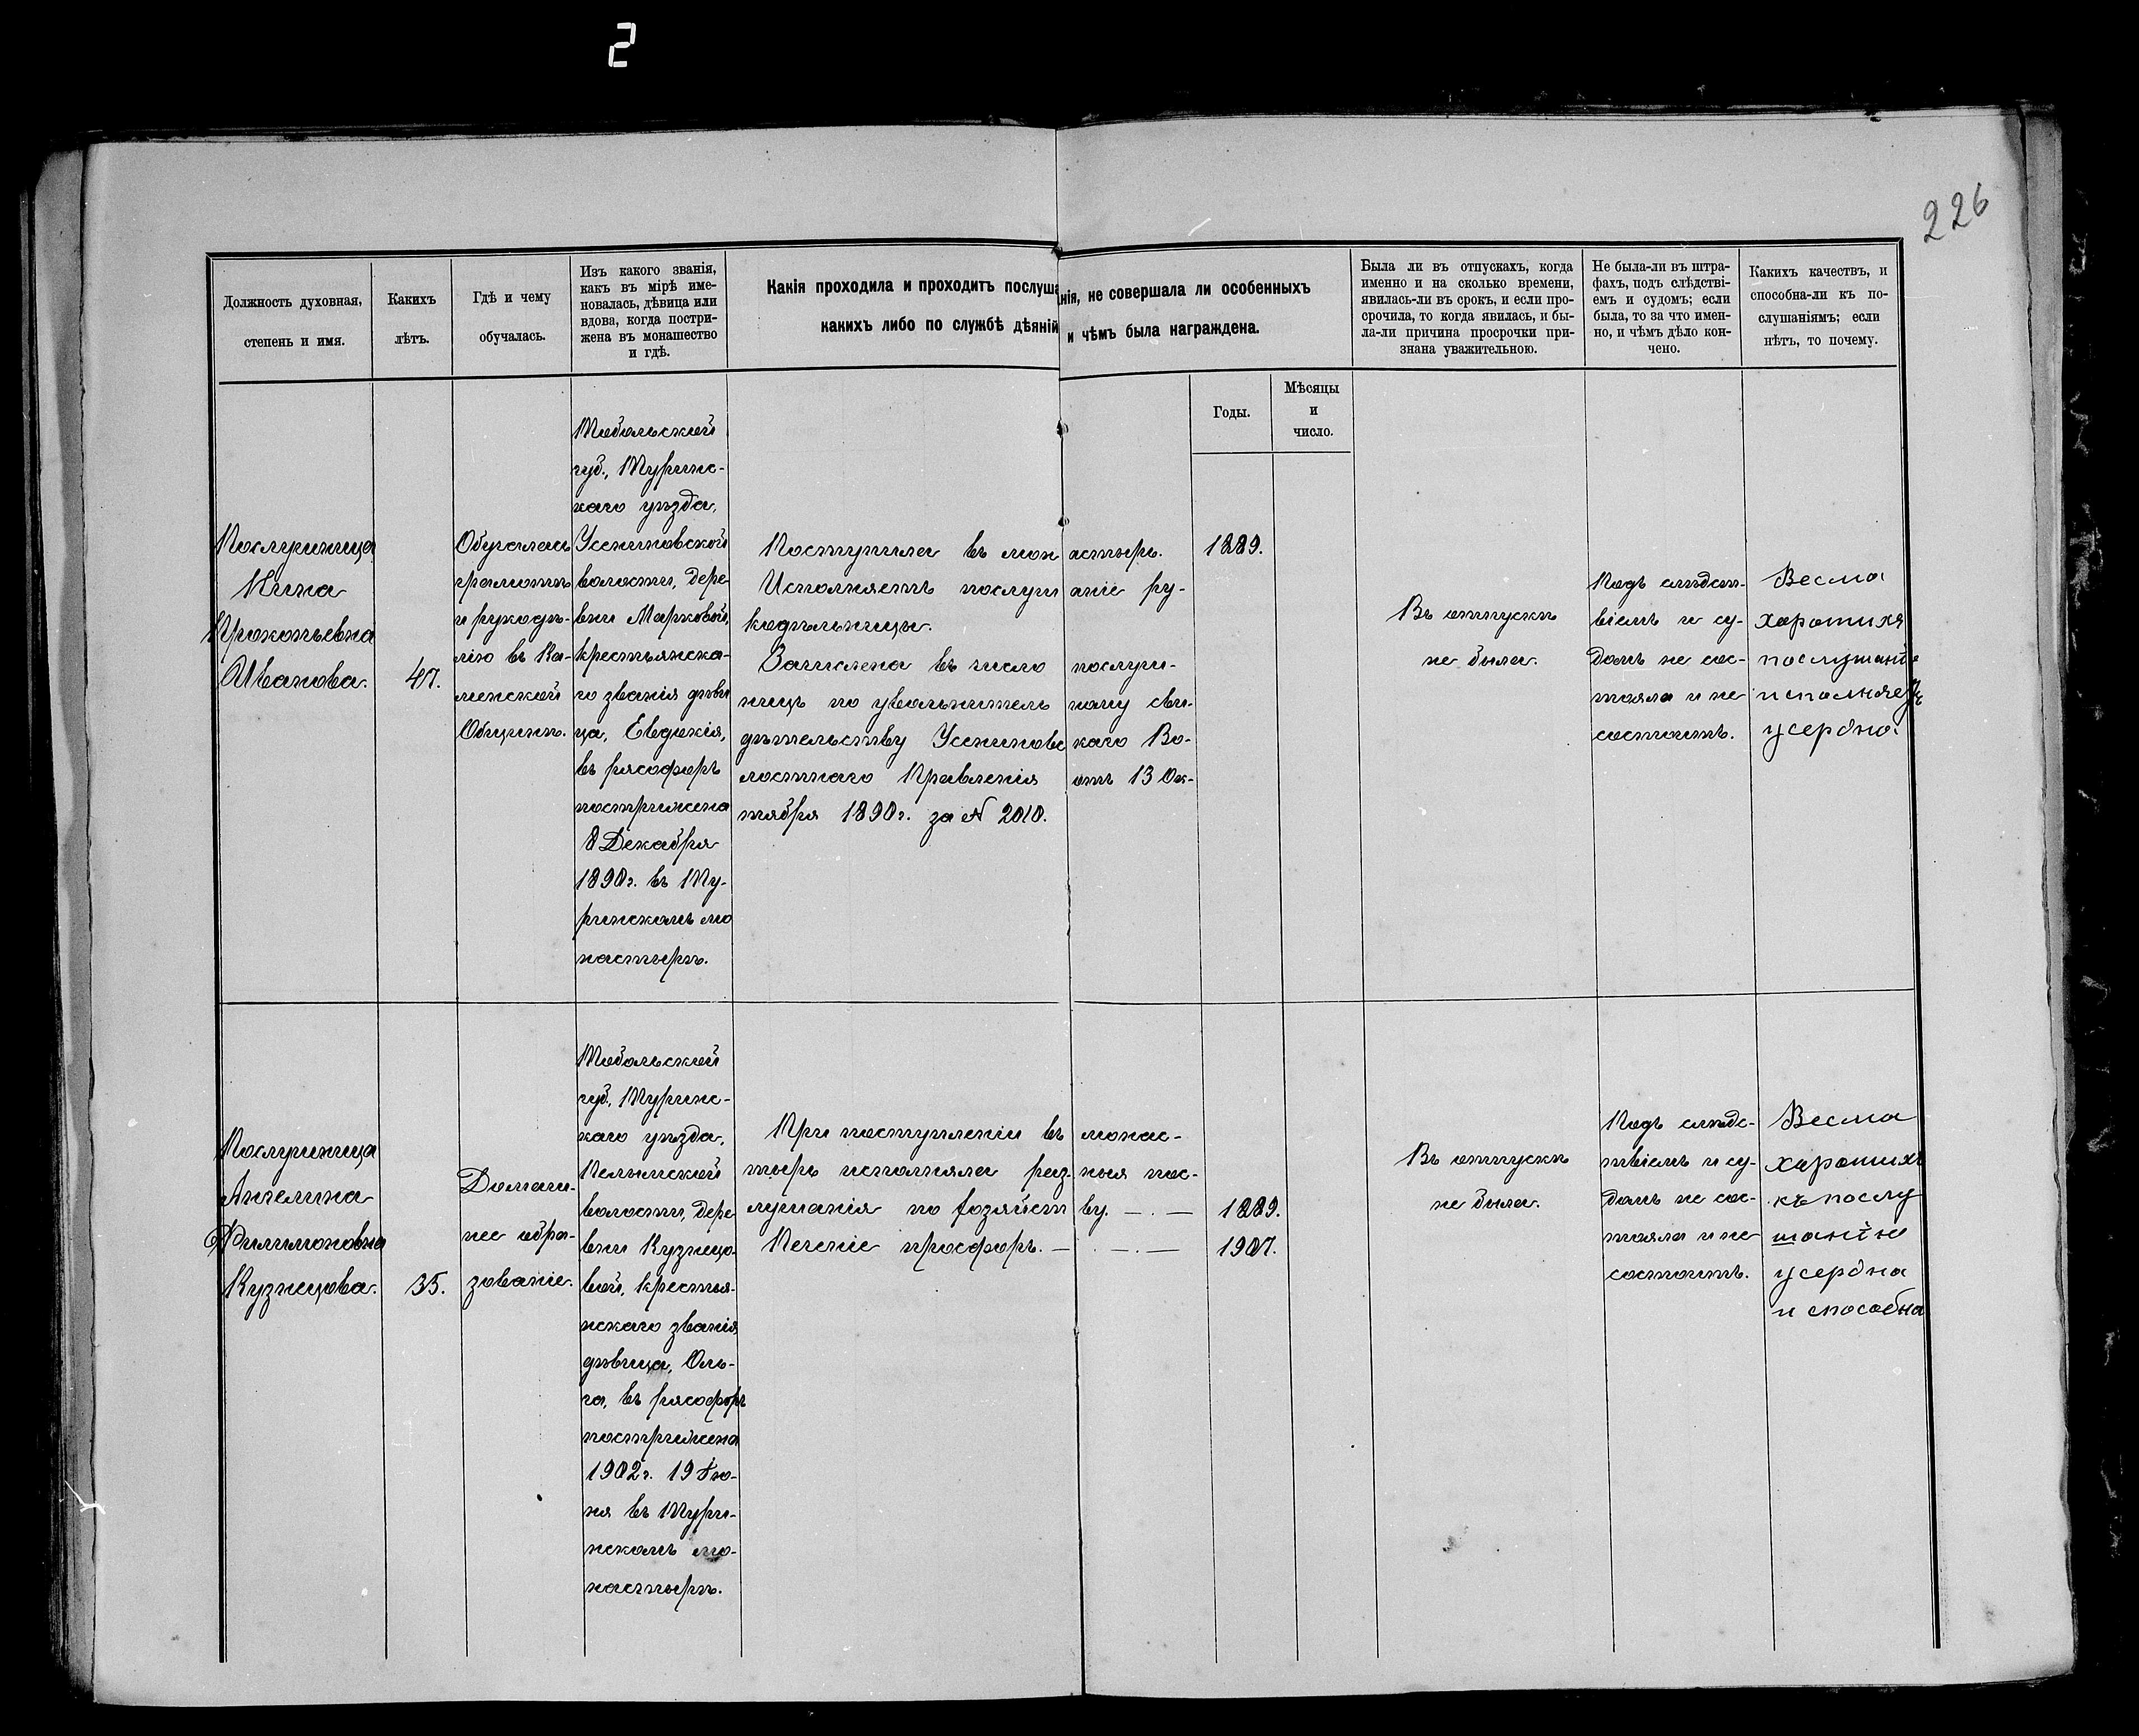 2
226
Должность духовная,
степень и имя.
Какихъ
лѣтъ.
Гдѣ и чему
обучалась.
Изъ какого званія,
какъ въ мірѣ име-
новалась, дѣвица или
вдова, когда постри-
жена въ монашество
и гдѣ.
Какія проходила и проходитъ послушанія, не совершала ли особенныхъ
какихъ либо по службѣ дѣяній и чѣмъ была награждена.
Годы.
Мѣсяцы
и
число.
Была ли въ отпускахъ, когда
именно и на сколько времени,
явилась-ли въ срокъ, и если про-
срочила, то когда явилась, и бы-
ла-ли причина просрочки при-
знана уважительною.
Не была-ли въ штра-
фахъ, подъ слѣдстві-
емъ и судомъ; если
была, то за что имен-
но, и чѣмъ дѣло кон-
чено.
Какихъ качествъ, и
способна-ли къ по-
слушаніямъ; если
нѣтъ, то почему.
Послушница
Нина
Прокопьевна
Иванова.
47.
Обучалась
грамотѣ
и рукодѣ-
лію въ Ка-
менской
Общинѣ.
Тобольской
губ., Турин-
скаго уѣзда,
Усениновской
волости, дере
вни Марковой,
крестьянска-
го званія дѣви
ца, Евдокія,
въ рясофоръ
пострижена
8 Декабря
1890г. въ Ту-
ринскомъ мо
настырѣ.
Поступила въ монастырь.
Исполняетъ послушаніе ру-
кодѣльницы.
Зачислена въ число послуш-
ницъ по увольнительному сви-
дѣтельству Усениновскаго Во-
лостнаго Правленія отъ 13 Ок-
тября 1890г. за № 2010.
1889.
Въ отпускѣ
не была.
Подъ слѣдст-
віемъ и су-
домъ не сос-
тояла и не
состоитъ.
Весма
хоротихя
послушаніе
исполняетъ
усердно.
Послушница
Ангелина
Филимоновна
Кузнецова.
35.
Домаш-
нее обра-
зованіе.
Тобольской
губ., Туринс-
каго уѣзда,
Пелымской
волости, дере
вни Кузнецо-
вой, крестья-
нскаго званія
дѣвица, Оль-
га, въ рясофоръ
пострижена
1902г. 19 Ію-
ня въ Тури-
нскомъ мо-
настырѣ.
При поступленіи въ монас-
тырь исполняла разныя пос-
лушанія по хозяйству. — . —
Печеніе просфоръ. — . — . —
1889.
1907.
Въ отпускѣ
не была.
Подъ слѣдс-
твіемъ и су-
домъ не сос-
тояла и не
состоитъ.
Весма
хорошихъ
къ послу
шанію
усердна
и способна